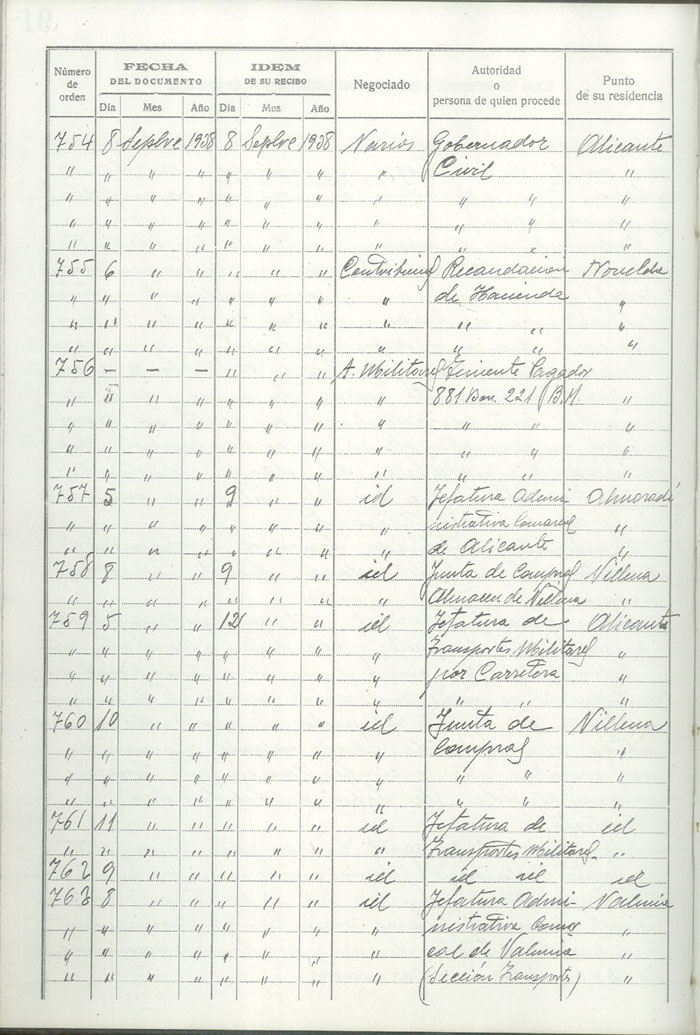 Número de orden FECHA DEL DOCUMENTO IDEM DE SU RECIBO Negociado Autoridad o persona de quien procede Punto de su residencia
Dia Mes Año Dia Mes Año
754 8 Sepbre 1938 8 Sepbre 1938 Varios Gobernador Alicante
" " " " " " " " Civil "
" " " " " " " " " " "
" " " " " " " " " " "
" " " " " " " " " " "
755 6 " " " " " Recaudación Novelda
" " " " " " " " de Hacienda "
" " " " " " " " " " "
" " " " " " " " " " "
756 – – – " " " A. Militares Teniente Pagador
" " " " " " " " 881 Bon. 221 B.M. "
" " " " " " " " " " "
" " " " " " " " " " "
" " " " " " " " " " "
757 5 " " 9 " " id Jefatura Admi Almoradi
" " " " " " " " nistrativa Comarcal "
" " " " " " " " de Alicante "
758 8 " " 9 " " id Junta de Compras Villena
" " " " " " " " Almacen de Villena "
759 5 " " 12 " " id Jefatura de Alicante
" " " " " " " " Transportes Militares "
" " " " " " " " por Carretera "
" " " " " " " " " " "
760 10 " " " " " id Junta de Villena
" " " " " " " " Compras "
" " " " " " " " " " "
" " " " " " " " " " "
761 11 " " " " " id Jefatura de id
" " " " " " " " Transportes Militares "
762 9 " " " " " id id id id
763 8 " " " " " id Jefatura Admi Valencia
" " " " " " " " nistrativa Comar
" " " " " " " " cal de Valencia "
" " " " " " " " (Sección Transportes) "